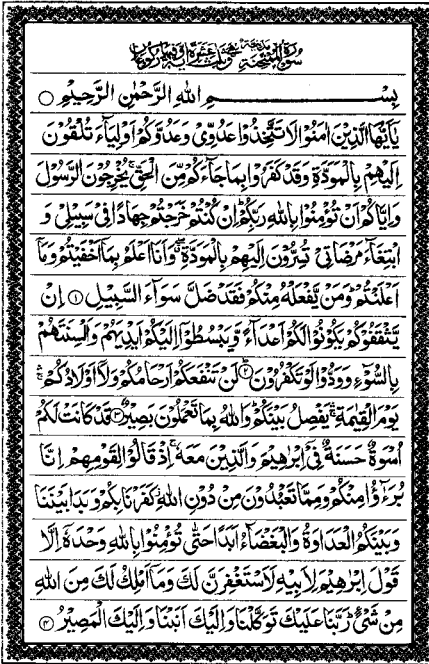 سُوْرَةُ الْمُمْتَحِنَةِ مَدَنِيَّةٌ وَّهِيَ ثَلٰثَ عَشْرَةَ اٰيَةً وَّفِيْهَا رُكُوْعَانِ
بِسْمِ اللّٰهِ الرَّحْمٰنِ الرَّحِيْمِ ○
يٰۤاَيُّهَا الَّذِيْنَ اٰمَنُوْا لَا تَتَّخِذُوْا عَدُوِّيْ وَعَدُوَّكُمْ اَوْلِيَآءَ تُلْقُوْنَ
اِلَيْهِمْ بِالْمَوَدَّةِ وَقَدْ كَفَرُوْا بِمَا جَآءَكُمْ مِّنَ الْحَقِّ ۚ يُخْرِجُوْنَ الرَّسُوْلَ
وَاِيَّاكُمْ اَنْ تُؤْمِنُوْا بِاللّٰهِ رَبِّكُمْ ؕ اِنْ كُنْتُمْ خَرَجْتُمْ جِهَادًا فِيْ سَبِيْلِيْ وَ
ابْتِغَآءَ مَرْضَاتِيْ تُسِرُّوْنَ اِلَيْهِمْ بِالْمَوَدَّةِ ۖ وَاَنَا اَعْلَمُ بِمَاۤ اَخْفَيْتُمْ وَمَاۤ
اَعْلَنْتُمْ ؕ وَمَنْ يَّفْعَلْهُ مِنْكُمْ فَقَدْ ضَلَّ سَوَآءَ السَّبِيْلِ ۝۱ اِنْ
يَّثْقَفُوْكُمْ يَكُوْنُوْا لَكُمْ اَعْدَآءً وَّيَبْسُطُوْۤا اِلَيْكُمْ اَيْدِيَهُمْ وَاَلْسِنَتَهُمْ
بِالسُّوْٓءِ وَوَدُّوْا لَوْ تَكْفُرُوْنَ ۝۲ لَنْ تَنْفَعَكُمْ اَرْحَامُكُمْ وَلَاۤ اَوْلَادُكُمْ ۛۚ
يَوْمَ الْقِيٰمَةِ ۛۚ يَفْصِلُ بَيْنَكُمْ ؕ وَاللّٰهُ بِمَا تَعْمَلُوْنَ بَصِيْرٌ ۝۳ قَدْ كَانَتْ لَكُمْ
اُسْوَةٌ حَسَنَةٌ فِيْۤ اِبْرٰهِيْمَ وَالَّذِيْنَ مَعَهٗ ۚ اِذْ قَالُوْا لِقَوْمِهِمْ اِنَّا
بُرَءٰٓؤُا مِنْكُمْ وَمِمَّا تَعْبُدُوْنَ مِنْ دُوْنِ اللّٰهِ ؗ كَفَرْنَا بِكُمْ وَبَدَا بَيْنَنَا
وَبَيْنَكُمُ الْعَدَاوَةُ وَالْبَغْضَآءُ اَبَدًا حَتّٰى تُؤْمِنُوْا بِاللّٰهِ وَحْدَهٗۤ اِلَّا
قَوْلَ اِبْرٰهِيْمَ لِاَبِيْهِ لَاَسْتَغْفِرَنَّ لَكَ وَمَاۤ اَمْلِكُ لَكَ مِنَ اللّٰهِ
مِنْ شَيْءٍ ؕ رَبَّنَا عَلَيْكَ تَوَكَّلْنَا وَاِلَيْكَ اَنَبْنَا وَاِلَيْكَ الْمَصِيْرُ ۝۴